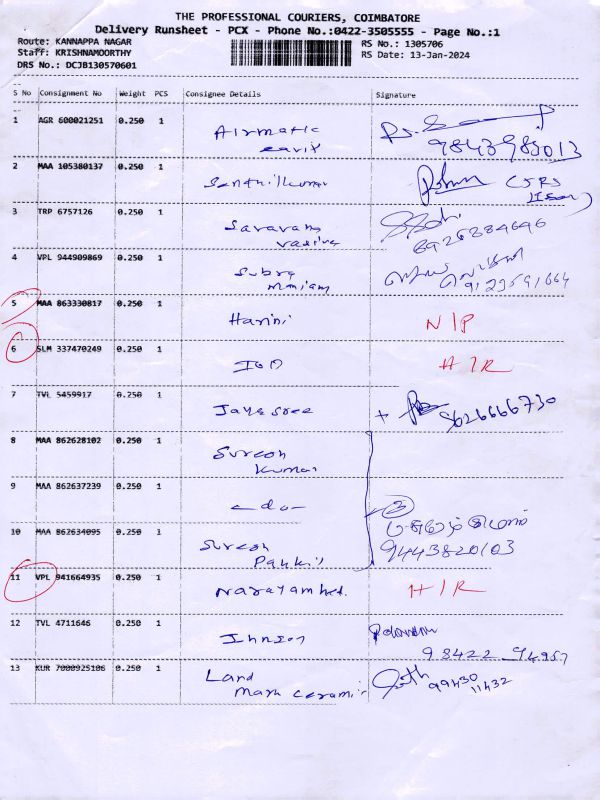 THE PROFESSIONAL COURIERS, COIMBATORE
Delivery Runsheet - PCX - Phone No.:0422-3505555 - Page No.:1
Route: KANNAPPA NAGAR
RS No.: 1305706
Staff: KRISHNAMOORTHY
RS Date: 13-Jan-2024
DRS No.: DCJB130570601
S No Consignment No Weight PCS Consignee Details Signature
1 AGR 600021251 0.250 1 Airmatic
9843985013
2 MAA 105380137 0.250 1 Senthilkumar
3 TRP 6757126 0.250 1 Saravana
8926384646
4 VPL 944909869 0.250 1 Subra
maniam 9123591664
5 MAA 863330817 0.250 1 Harini N/P
6 SLM 337470249 0.250 1 IOD H/R
7 TVL 5459917 0.250 1 Jayasree
8 MAA 862628102 0.250 1 Suresh
Kumar
9 MAA 862637239 0.250 1 -do- 3
10 MAA 862634095 0.250 1 Suresh
9443820103
11 VPL 941664935 0.250 1 H/R
12 TVL 4711646 0.250 1
98422 94957
13 KUR 7000925106 0.250 1 Land
mark ceramic 99430
11432